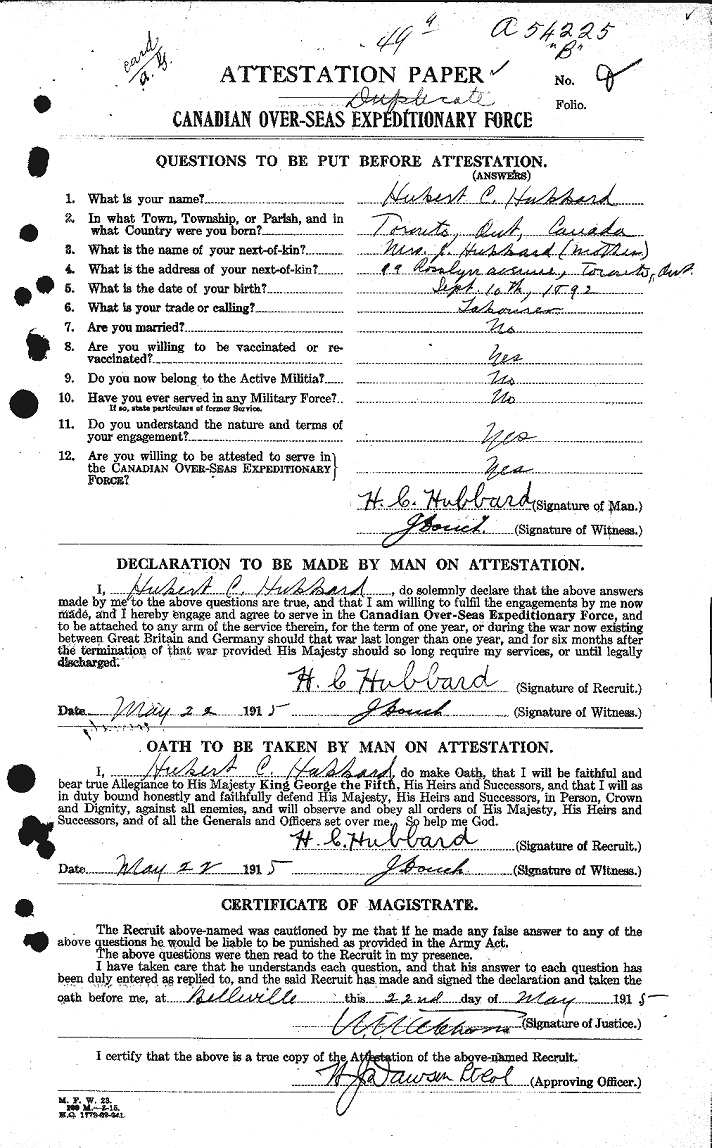 49 a
A 54225
"B"
card
ATTESTATION PAPER
No.
Duplicate
Folio.
CANADIAN OVER-SEAS EXPEDITIONARY FORCE
QUESTIONS TO BE PUT BEFORE ATTESTATION.
(ANSWERS)
1. What is your name? Hubert C. Hubbard
2. In what Town, Township, or Parish, and in
what Country were you born? Toronto, Ont, Canada
3. What is the name of your next-of-kin? Mrs. J. Hubbard (mother)
4. What is the address of your next-of-kin? 99 Rosslyn avenue, Toronto, Ont.
5. What is the date of your birth? Sept. 10th, 1892
6. What is your trade or calling? Labourer
7. Are you married? No
8. Are you willing to be vaccinated or re-
vaccinated? Yes
9. Do you now belong to the Active Militia? No
10. Have you ever served in any Military Force? No
If so, state particulars of former Service.
11. Do you understand the nature and terms of
your engagement? Yes
12. Are you willing to be attested to serve in
the CANADIAN OVER-SEAS EXPEDITIONARY Yes
FORCE?
H. C. Hubbard (Signature of Man.)
(Signature of Witness.)
DECLARATION TO BE MADE BY MAN ON ATTESTATION.
I, Hubert C. Hubbard, do solemnly declare that the above answers
made by me to the above questions are true, and that I am willing to fulfil the engagements by me now
made, and I hereby engage and agree to serve in the Canadian Over-Seas Expeditionary Force, and
to be attached to any arm of the service therein, for the term of one year, or during the war now existing
between Great Britain and Germany should that war last longer than one year, and for six months after
the termination of that war provided His Majesty should so long require my services, or until legally
discharged.
H. C Hubbard (Signature of Recruit.)
Date May 22 1915 (Signature of Witness.)
OATH TO BE TAKEN BY MAN ON ATTESTATION.
I, Hubert C. Hubbard, do make Oath, that I will be faithful and
bear true Allegiance to His Majesty King George the Fifth, His Heirs and Successors, and that I will as
in duty bound honestly and faithfully defend His Majesty, His Heirs and Successors, in Person, Crown
and Dignity, against all enemies, and will observe and obey all orders of His Majesty, His Heirs and
Successors, and of all the Generals and Officers set over me. So help me God.
H. C. Hubbard (Signature of Recruit.)
Date May 22 1915 (Signature of Witness.)
CERTIFICATE OF MAGISTRATE.
The Recruit above-named was cautioned by me that if he made any false answer to any of the
above questions he would be liable to be punished as provided in the Army Act.
The above questions were then read to the Recruit in my presence.
I have taken care that he understands each question, and that his answer to each question has
been duly entered as replied to, and the said Recruit has made and signed the declaration and taken the
oath before me, at Belleville this 22nd day of May 1915
(Signature of Justice.)
I certify that the above is a true copy of the Attestation of the above-named Recruit.
Dawson Lt Col (Approving Officer.)
M. F. W. 23.
M.-2-15.
H.Q. 1772-39-841.